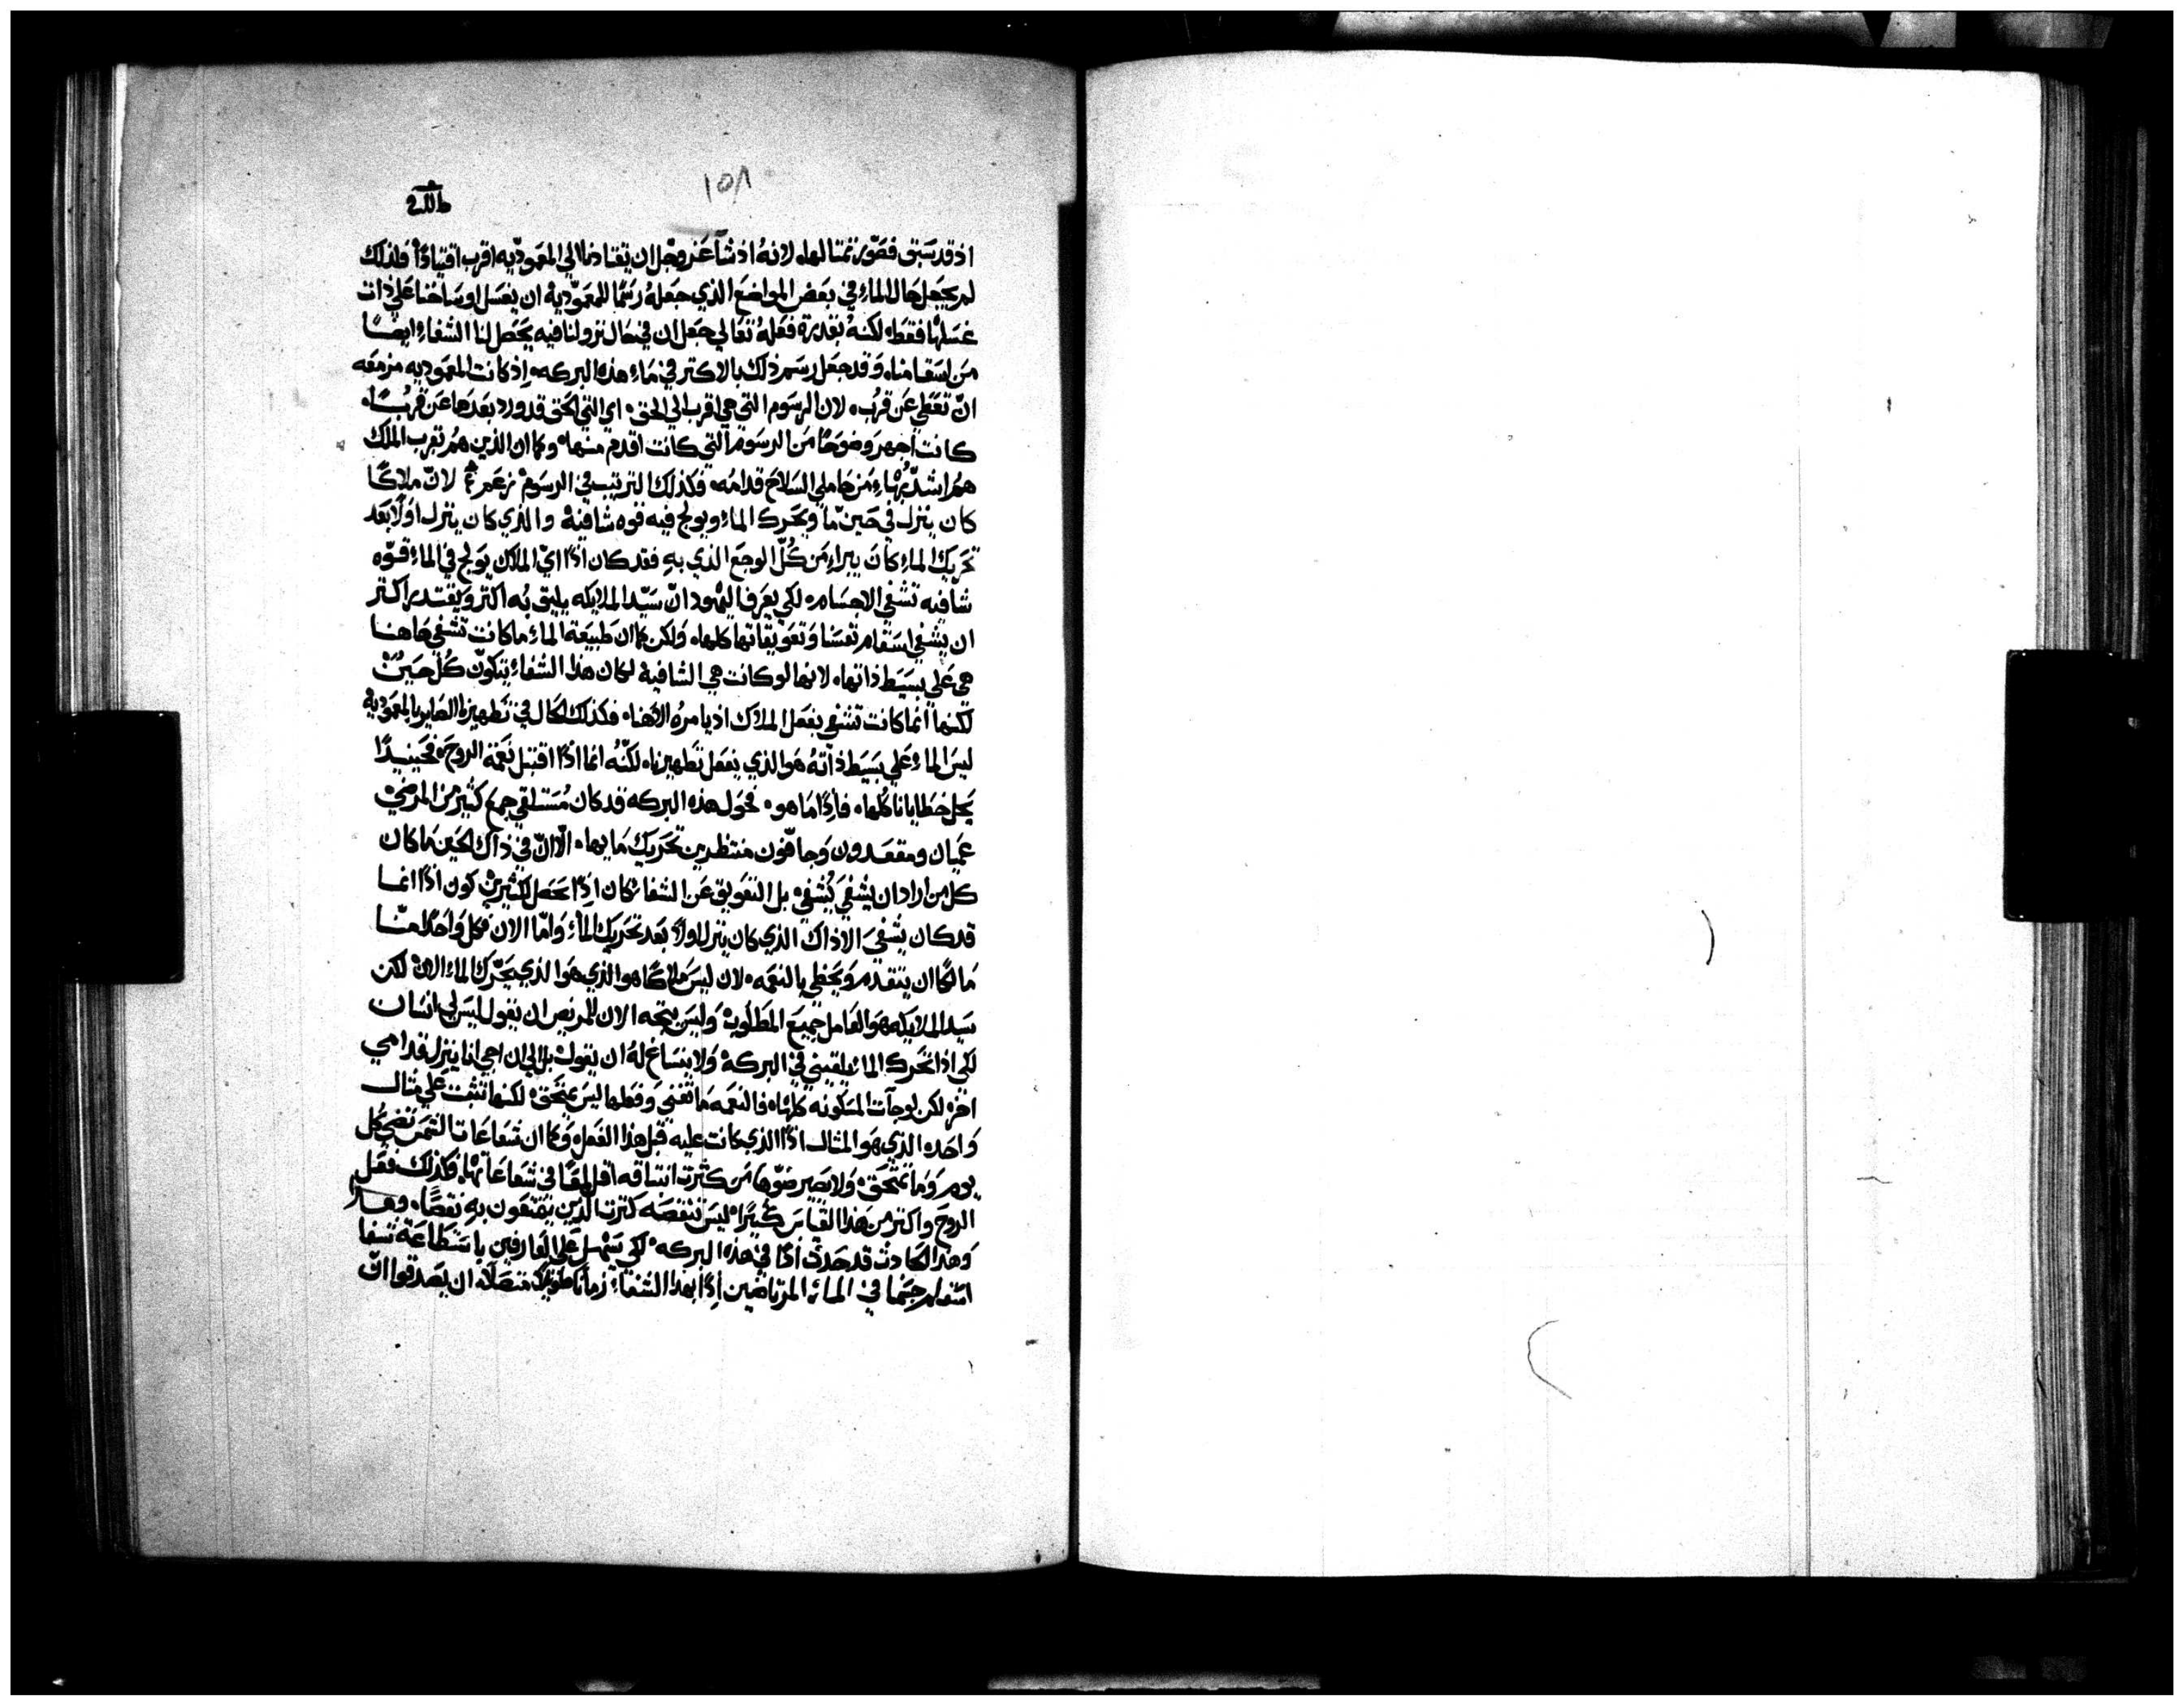 ١٥٨
اذ قد سَبق فصَوّر تمتالها، لانهُ اذ شآ عَز وجَل ان يقتادنا الي المعَموديّه اقرب اقتيادًا فلذلك
لم يجعَل حَال الماءِ في بعَض المواضع الذي جَعلهُ رسَمًا للمعَموديةِ ان يغسَل اوسَاخنا علي ذات
غسَلها فقط، لكنهُ بقدرة فعَلهُ تعَالي جعَل ان في حَال نزولنا فيه يحَصَل لنا الشفاءِ ايضًا
مَن اسَقامنا، وَقد جعَل رسَم ذلك بالاكتر في مَاءِ هذه البركه، اِذ كانت المعَموديه مزمعَه
انّ تعَطي عَن قربُ، لان الرسَوم التي هي اقرب الي الحق، اي التي الحَق قد ورد بعَدهَا عَن قربُ
كانت اجهر وضوحًا مَن الرسَوم التي كانت اقدم منها، وكما ان الذين همُ بقرب الملك
همُ اشدّ بهاءِ مَن حَاملي السَلاح قدامهُ، فكذلك الترتيب في الرسَوم لانّ ملاكًا
كان ينزل في حَين مّا ويحَرك الماءِ ويولج فيه قوه شافيهْ والذي كان ينزل اولًا بعَد
تحَريك الماءِ كان يبراءِ مَن كُلّ الوجعَ الذي بهِ فقد كان اذًا ايّ الملاك يوَلج في الماءِ قوّه
شافيه تشفي الاجسَام، لكي يعَرف اليهُود انّ سَيّد الملايكه يليق بُه اكتر ويَقتدر اكتر
ان يشفي اسَقام نفسَنا وَتعَويقاتها كلها، وَلكن كما ان طبيَعة الماءِ ما كانت تشفي هَاهنا
هي عَلي بسَيَط ذاتها، لانها لو كانت هي الشافية لكان هذا الشفاءِ يتكوّن كُل حَين
لكنها انما كانت تشفي بفعَل الملاك اذ يامرهُ الاهنا، فكذلك الحَال في تطهيرنا الصَاير بالمعَموديه
ليسَ الماءِ عَلي بسَيط ذاته هَو الذي يفعَل تطهيرنا، لكنّهُ انما اذا اقتبل نعَمَة الروحَ، فحَينيذًا
يحَل خطايانا كلها، فاِذًا ما هو، فحَول هذه البركه قد كان مُسَتلقي جمع كثير من المرضي
عَميان ومقعَدون وَجافّون منتظرين تحَريك مَايها، الّا انّ في ذاك الحَين مَا كان
كل من اراد ان يشفي يشُفي، بل التعَويق عَن الشفا كان اِذًا يحَصَل لكثيرين كون اذًا انما
قد كان يشفيَ الا ذاك الذي كان ينزل اولًا بعَد تحَريك الماءِ وَامّا الان فكل وَاحَد منّا
مَالكًا ان يتقدم وَيحَظي بالنعَمه، لان ليسَ ملاكًا هو الذي هَو الذي يحَرّك الماءِ الان لكن
سَيد الملايكه هَو العَامل جميعَ المطلوب، وَليسَ يتجه الان للمريض ان يقول ليسَ لي انسَان
لكي اذا تحَرك الماء يلقيني في البركه، وَلا ينسَاغ لهُ ان يقول بل الي ان اجي انا ينزل قدامي
اخر، لكن لو جآت المسَكونه كلها، فالنعَمه مَا تفني وَفعَلها ليسَ يمَتحَق، لكنها تثبت عَلي مثال
وَاحَد، الذي هَو المثال اذًا الذي كانت عليه قبل هذا الفعَل، وَكما ان شعَاعَات الشمَس تضي كل
يوم وَمَا تمتحَق، وَلا يصَير ضوّها مَن كثرت انتساقه اقل لمعًا في شعَاعَاتها، فكذلك فعَل
الروحَ واكتر من هَذا القيَاسَ كثيرًا، ليسَ تنقصَه كترت الذين يتمتعَون بهِ نقصًا،
وَهذا الحَادث قد حَدث اذًا في هذه البركه، لكي يسَهل عَلي العَارفين باسَتطاعَة شفا
اسَقام جسَمنا في الماءِ المرتاضين اِذًا بهذا الشفاءِ زمانًا طويلًا متصَلًا، ان يصَدقوا انّ